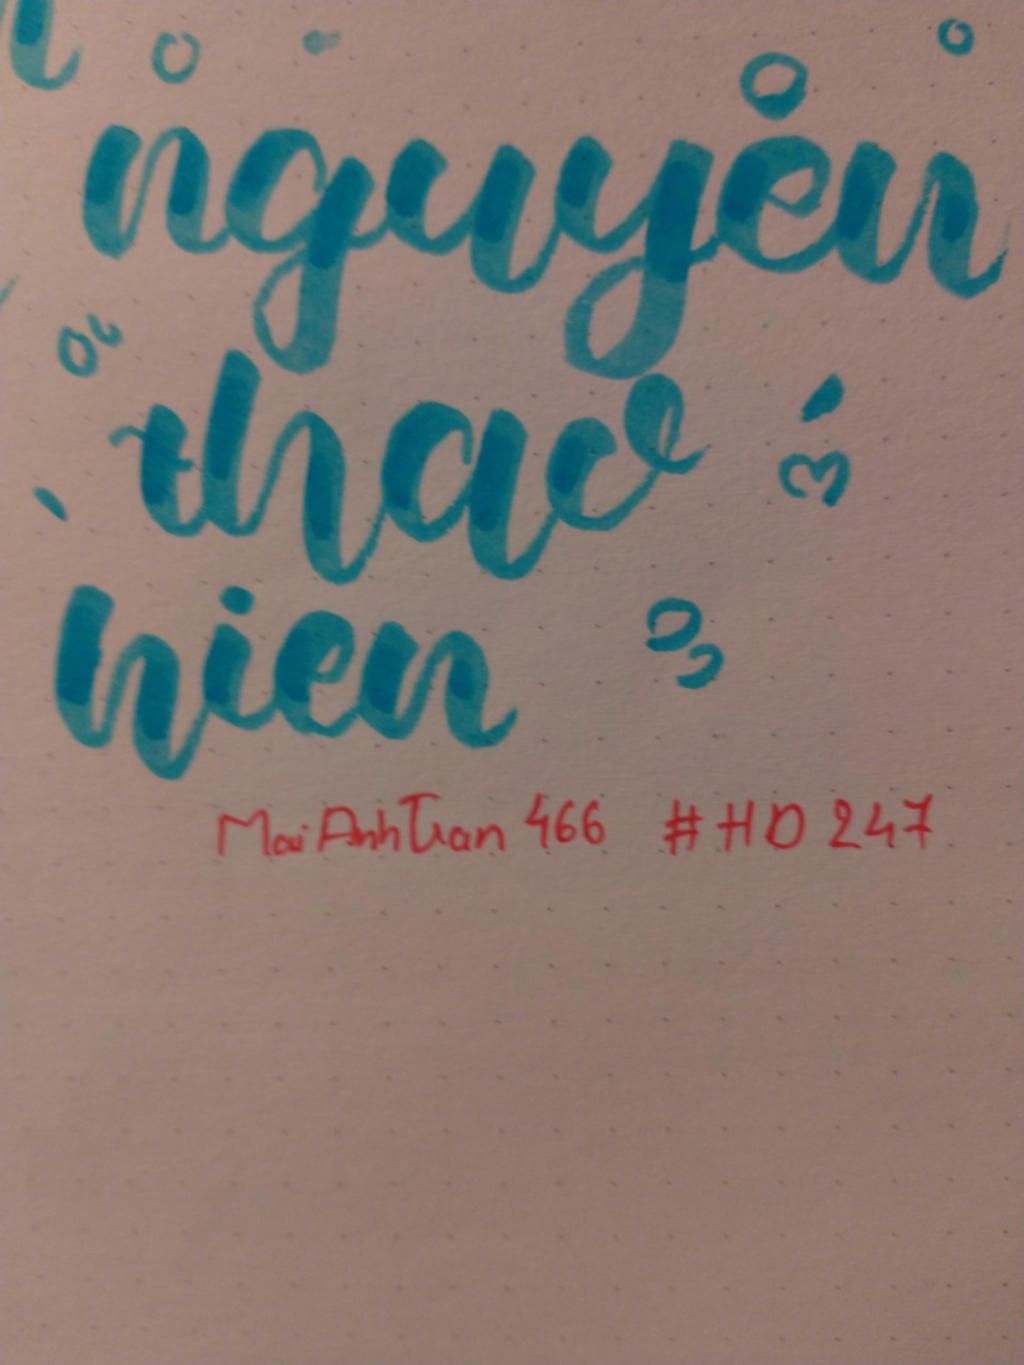 nguyen
thao
hien
MaiAnhTran 466 #HD 247